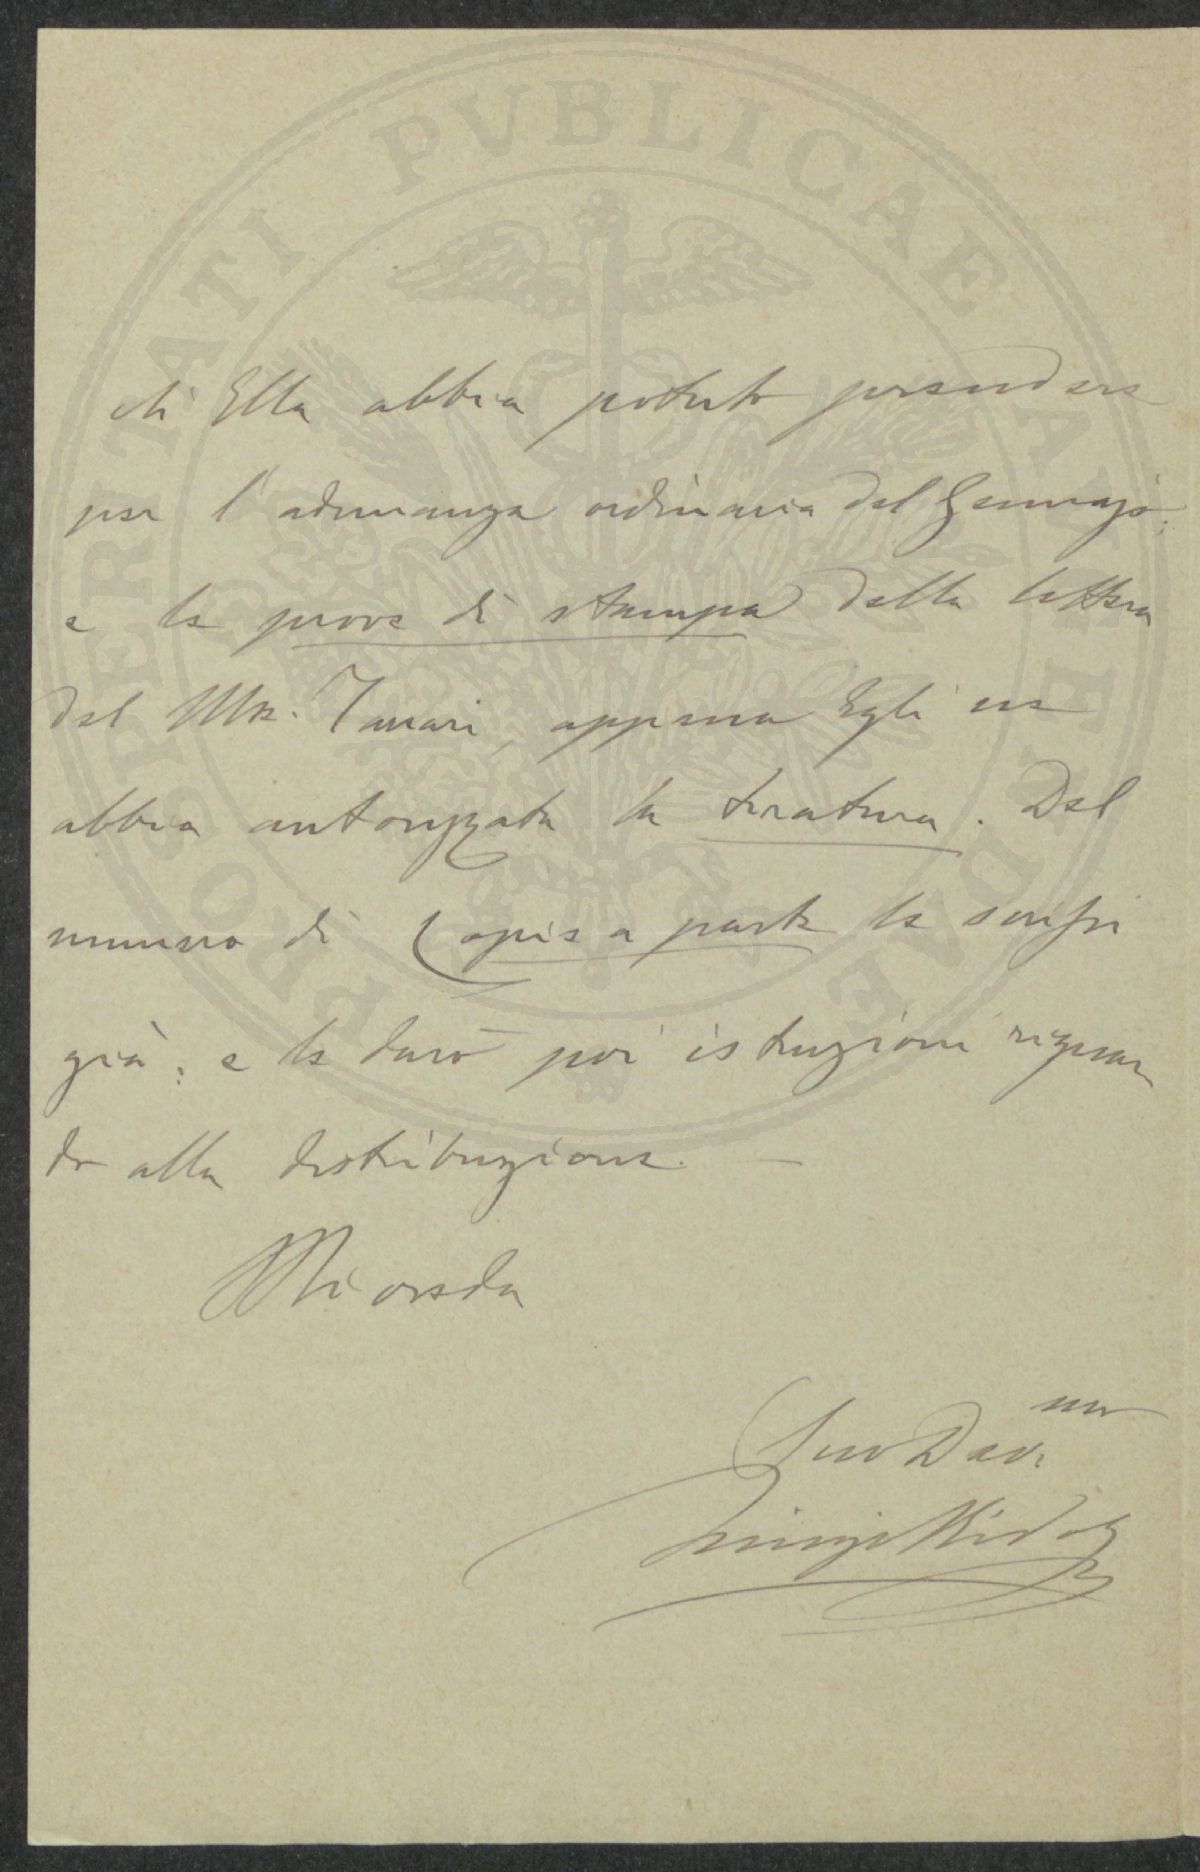 PROSPERITATI PVBLICAE AVGENDAE
ch' Ella abbia potuto prendere
per l' adunanza ordinaria del Gennajo;
e le prove di stampa della lettera
del Mse. Tanari, appena Egli ne
abbia autorizzata la tiratura. Del
numero di Copie a parte le scrissi
già; e le darò poi istruzioni riguar
do alla distribuzione. —
Mi creda
Suo Dev.mo